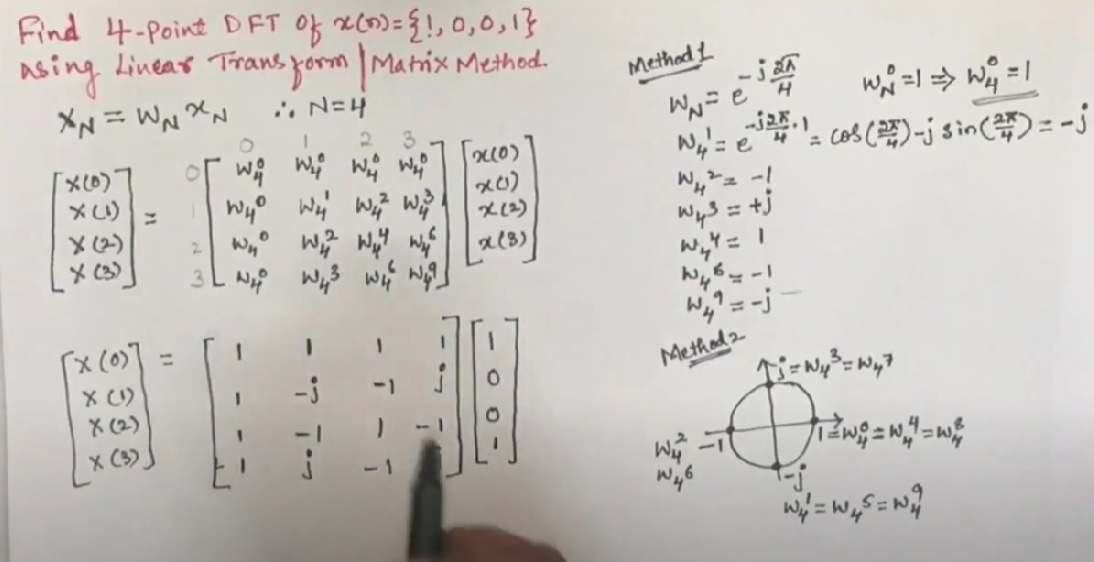 Find 4-Point DFT of x(n)={1,0,0,1}
using Linear Transform | Matrix Method.
X_N = W_N x_N ∴ N=4
0 1 2 3
[X(0)] 0 [W_4^0 W_4^0 W_4^0 W_4^0] [x(0)]
[X(1)] = 1 [W_4^0 W_4^1 W_4^2 W_4^3] [x(1)]
[X(2)] 2 [W_4^0 W_4^2 W_4^4 W_4^6] [x(2)]
[X(3)] 3 [W_4^0 W_4^3 W_4^6 W_4^9] [x(3)]
[X(0)] = [1 1 1 1] [1]
[X(1)] [1 -j -1 j] [0]
[X(2)] [1 -1 1 -1] [0]
[X(3)] [1 j -1] [1]
Method 1
W_N = e^{-j 2π/4} W_N^0 = 1 ⇒ W_4^0 = 1
W_4^1 = e^{-j 2π/4 · 1} = cos(2π/4) - j sin(2π/4) = -j
W_4^2 = -1
W_4^3 = +j
W_4^4 = 1
W_4^6 = -1
W_4^9 = -j
Method 2
j = W_4^3 = W_4^7
1 = W_4^0 = W_4^4 = W_4^8
W_4^2 -1
W_4^6
-j
W_4^1 = W_4^5 = W_4^9